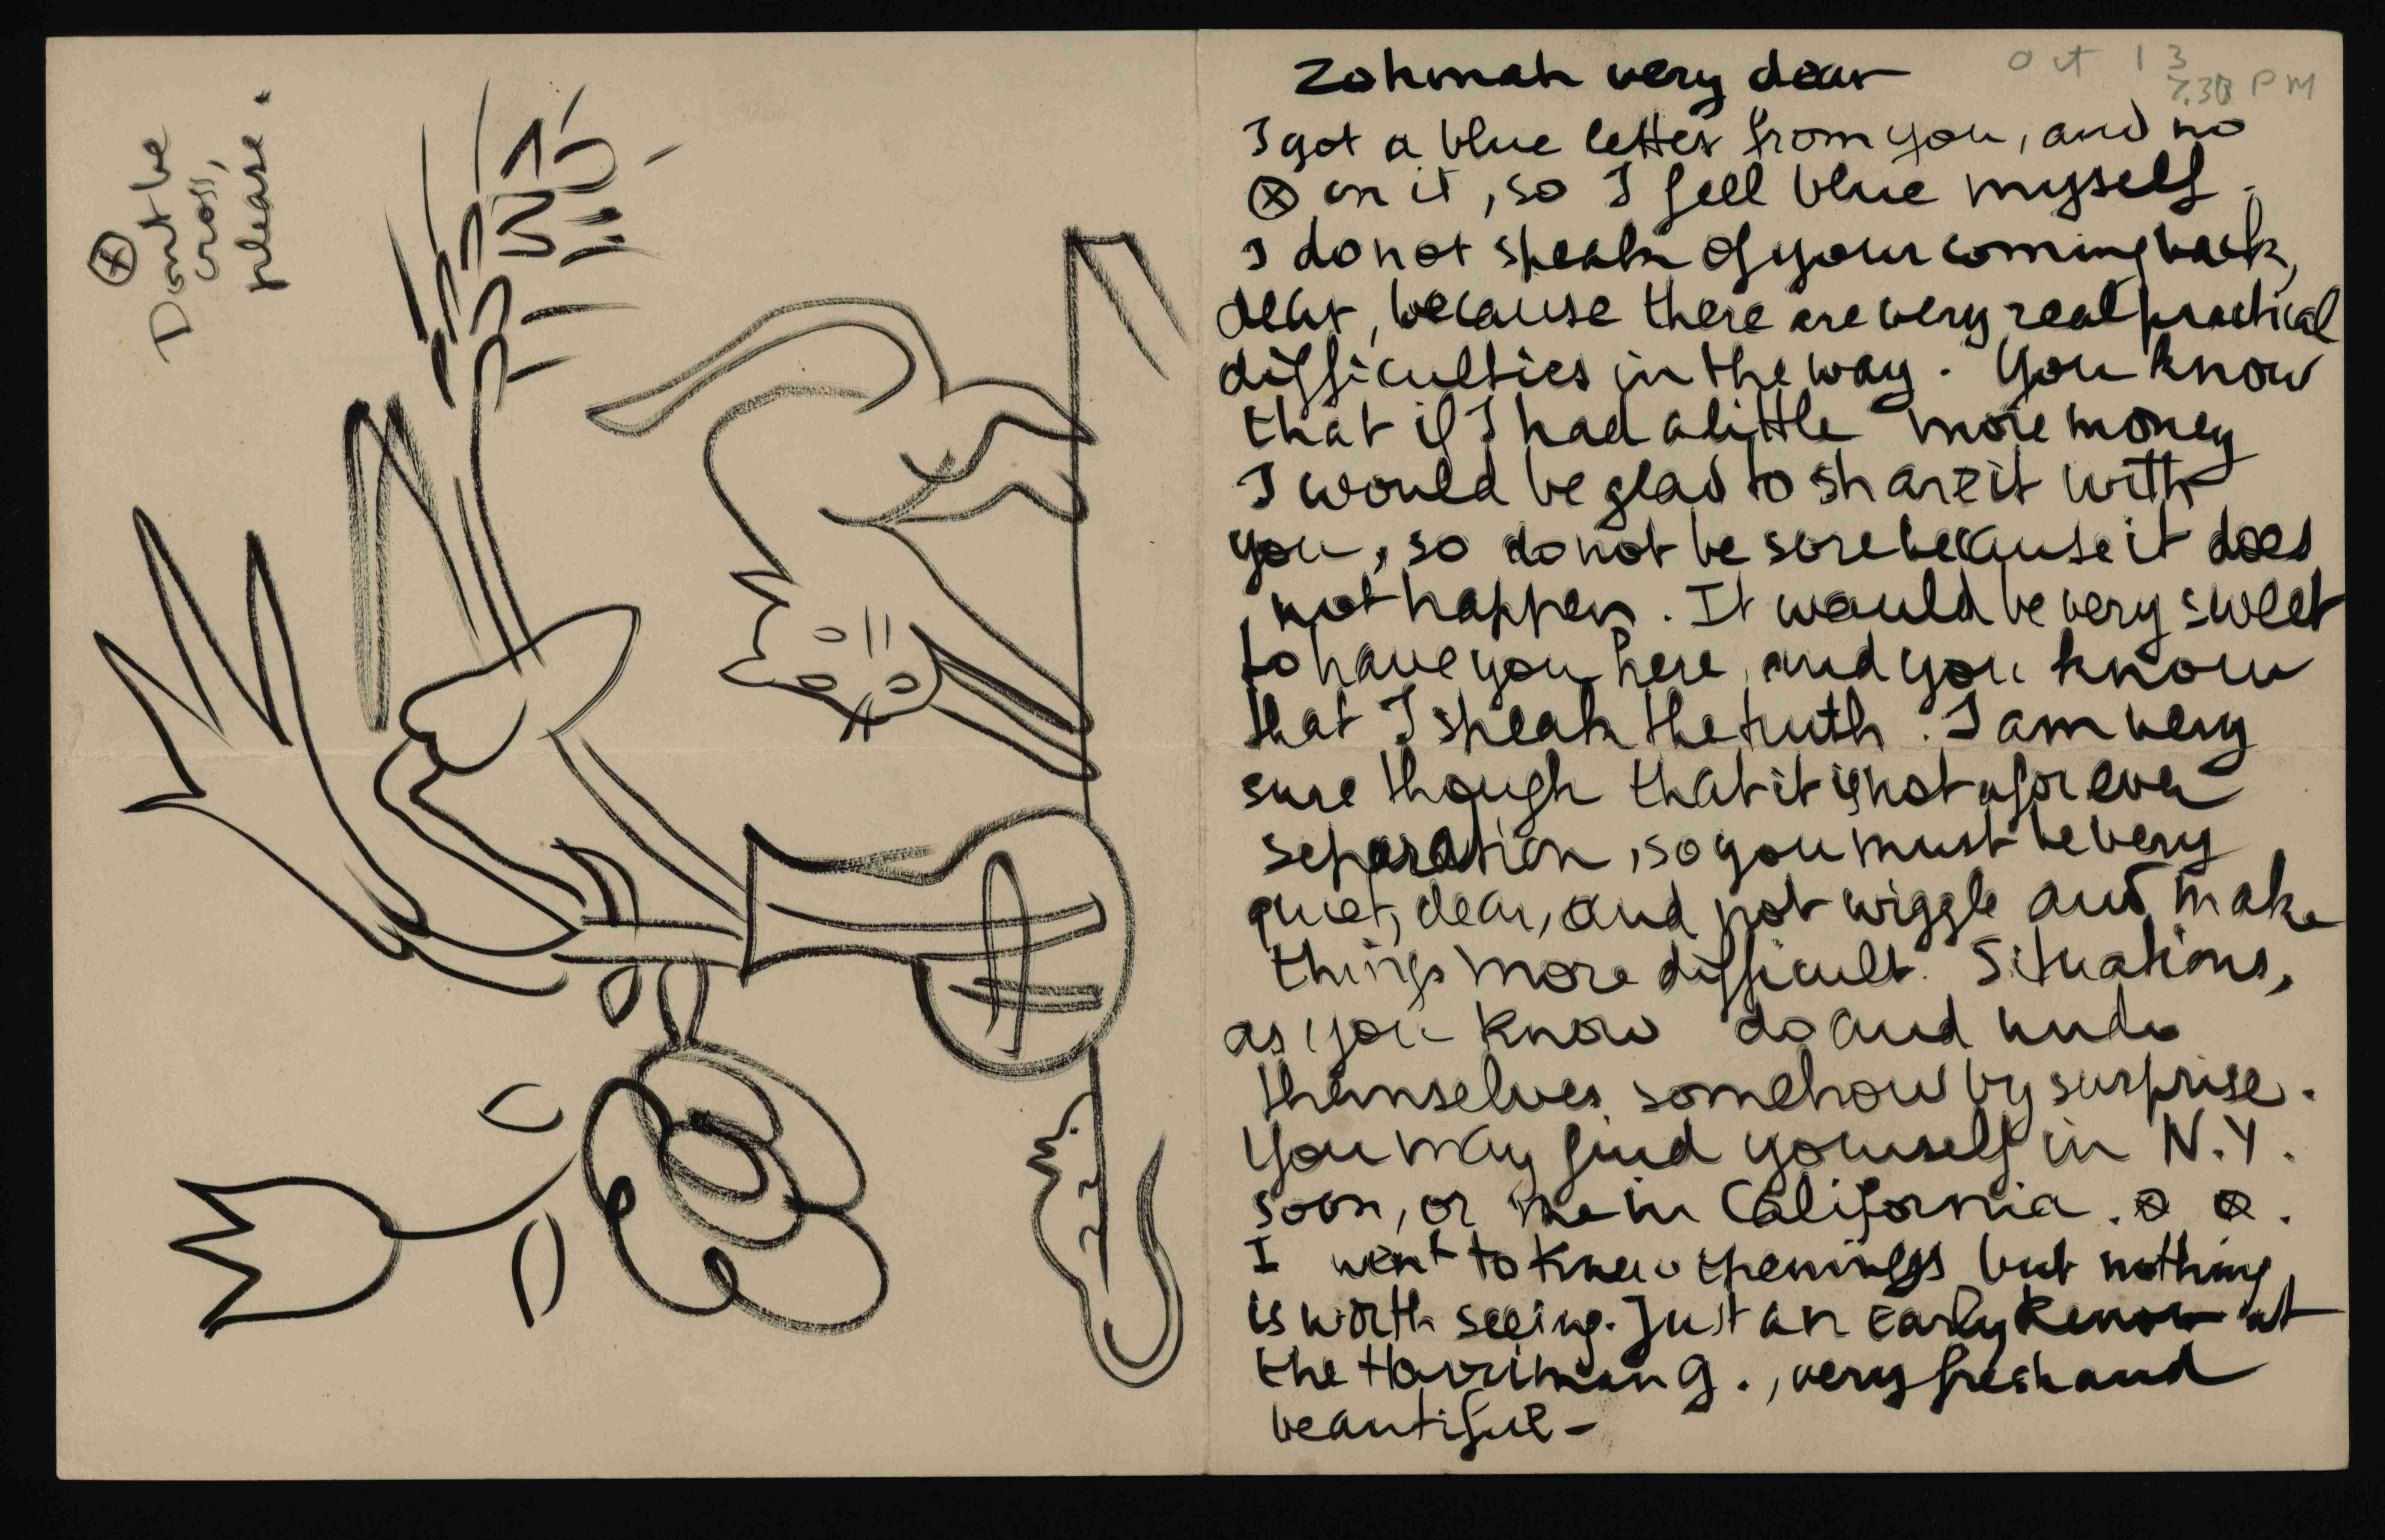 ⊗
Dont be
cross,
please.
Oct 13
7.30 PM
Zohmah very dear
I got a blue letter from you, and no
⊗ on it, so I feel blue myself.
I do not speak of your coming back,
dear, because there are very real practical
difficulties in the way. You know
that if I had a little more money
I would be glad to share it with
you, so do not be sore because it does
not happen. It would be very sweet
to have you here, and you know
that I speak the truth. I am very
sure though that it is not a for ever
separation, so you must be very
quiet, dear, and not wiggle and make
things more difficult. Situations,
as you know do and undo
themselves somehow by surprise.
You may find yourself in N.Y.
soon, or me in California. ⊗ ⊗.
I went to openings but nothing
is worth seeing. Just an early Renoir at
the Harriman G., very fresh and
beautiful -